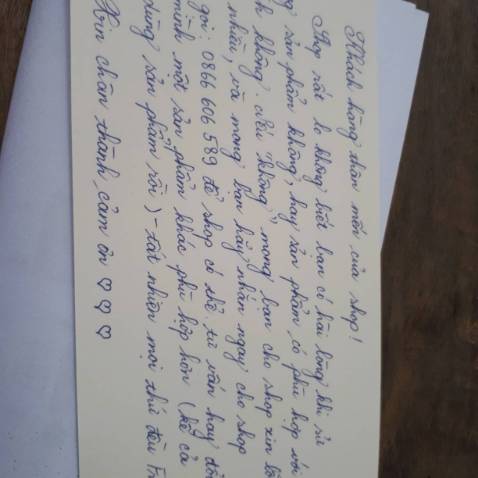 Khách hàng thân mến của shop!
Shop rất lo không biết bạn có hài lòng khi sử
sản phẩm không, hay sản phẩm có phù hợp với
không. Nếu "không", mong bạn cho shop xin lỗi
nhiều, và mong bạn hãy nhắn ngay cho shop
gọi: 0866 606 589 để shop có thể tư vấn hay đổi
mình một sản phẩm khác phù hợp hơn (kể cả
dùng sản phẩm rồi) - tất nhiên mọi thứ đều
Xin chân thành cảm ơn ♡ ♡ ♡